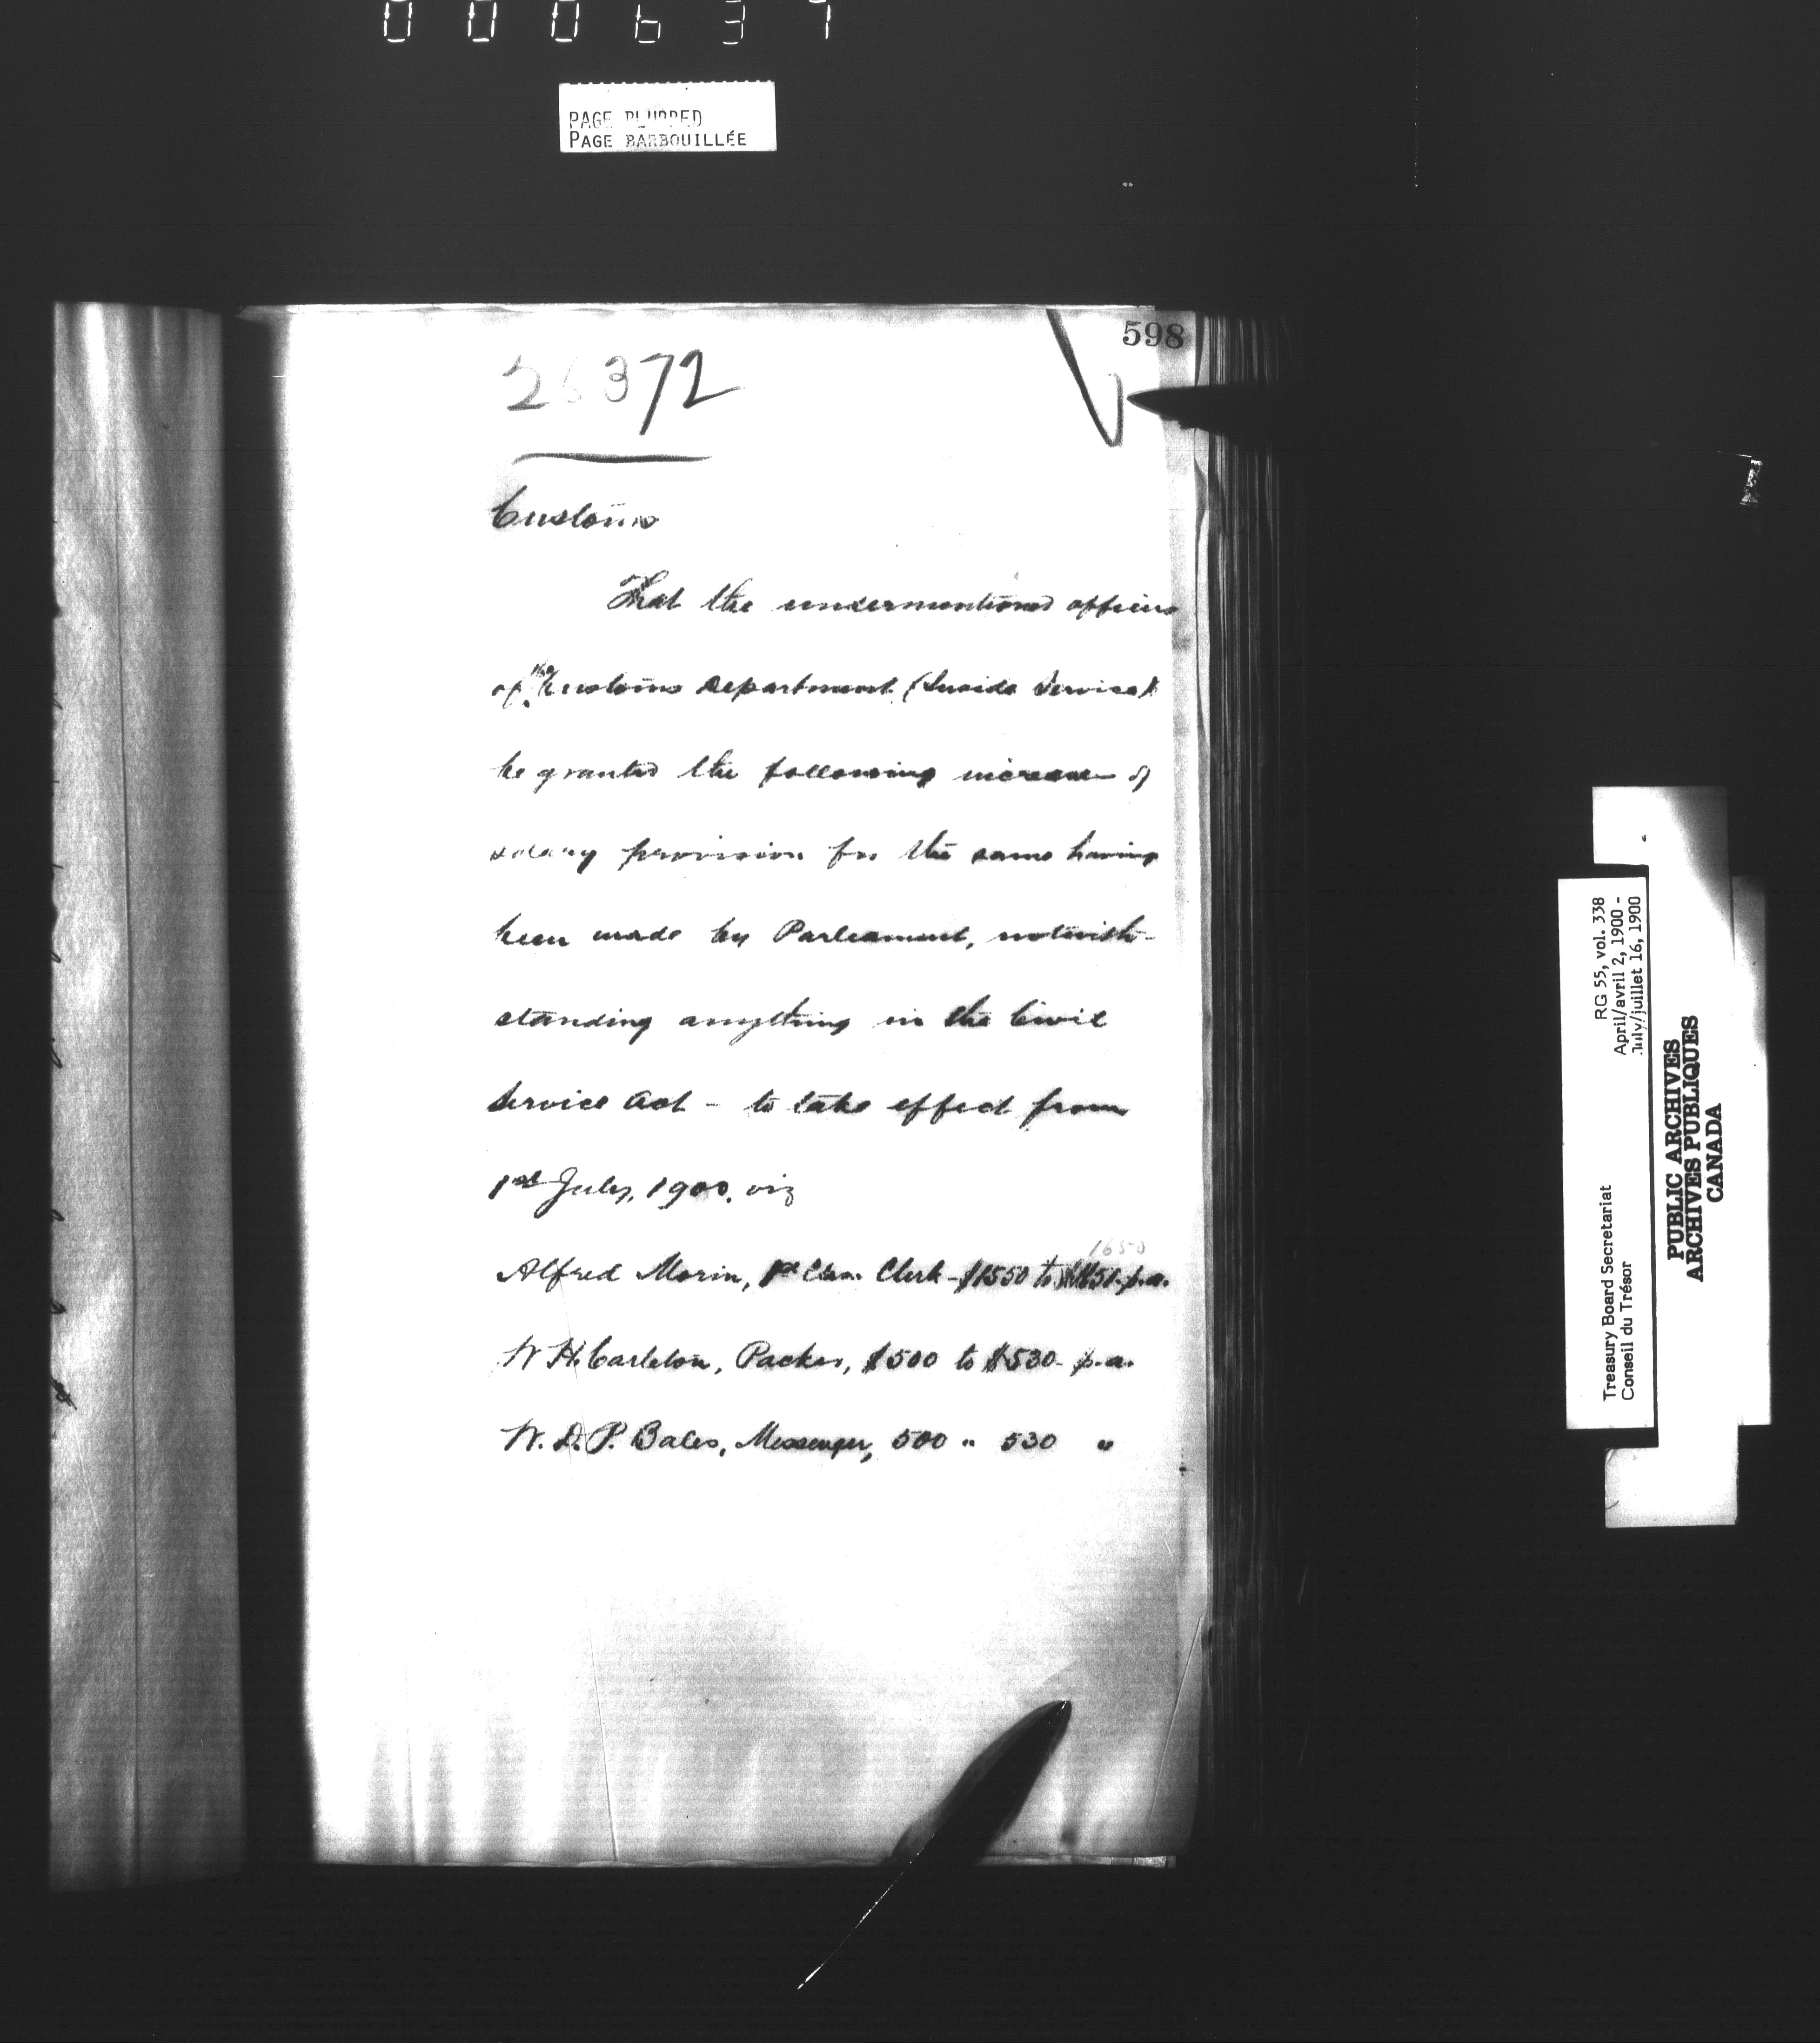 000637
PAGE BLURRED
PAGE BARBOUILLÉE
598
26372
Customs
That the undermentioned officers
of the Customs Department (Inside Service)
be granted the following increase of
salary provision for the same having
been made by Parliament, notwith-
standing anything in the Civil
Service Act - to take effect from
1st July, 1900, viz
1650
Alfred Morin, 1st Class Clerk - $1550 to $1650 p.a.
W H Carleton, Packer, $500 to $530 - p.a.
W. D. P. Bales, Messenger, 500 " 530 "
RG 55, vol. 338
April/avril 2, 1900 -
July/juillet 16, 1900
Treasury Board Secretariat
Conseil du Trésor
PUBLIC ARCHIVES
ARCHIVES PUBLIQUES
CANADA